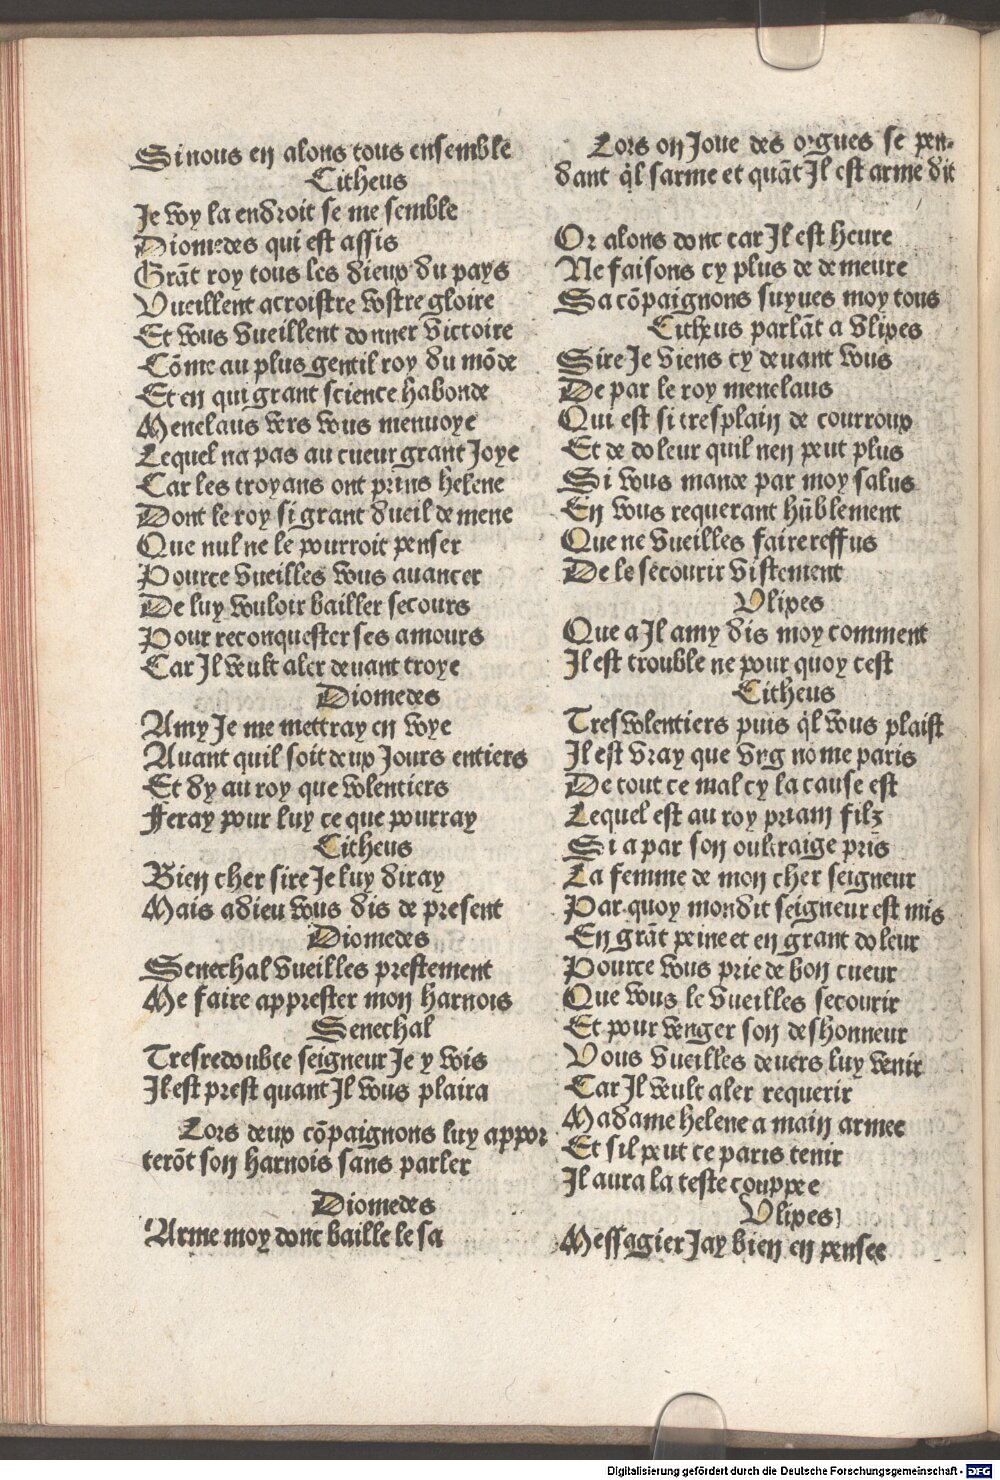 Si nous en alons tous ensemble
Citheus
Je voy la endroit se me semble
Diomedes qui est assis
Grãt roy tous les dieux du pays
Vueillent acroistre vostre gloire
Et vous vueillent donner victoire
Cõme au plus gentil roy du mõde
Et en qui grant science habonde
Menelaus vers vous menuoye
Lequel na pas au cueur grant Joye
Car les troyans ont prins helene
Dont le roy si grant dueil demene
Que nul ne le pourroit penser
Pource vueilles vous auancer
De luy vouloir bailler secours
Pour reconquester ses amours
Car Jl veult aler deuant troye
Diomedes
Amy Je me mettray en voye
Auant quil soit deux Jours entiers
Et dy au roy que volentiers
Feray pour luy ce que pourray
Citheus
Bien cher sire Je luy diray
Mais adieu vous dis de present
Diomedes
Senechal vueilles prestement
Me faire apprester mon harnois
Senechal
Tresredoubte seigneur Je y vois
Jl est prest quant Jl vous plaira
Lors deux cõpaignons luy appor
terõt son harnois sans parler
Diomedes
Arme moy donc baille le sa
Lors on Joue des orgues se pen-
dant q̃l sarme et quãt Jl est arme dit
Or alons donc car Jl est heure
Ne faisons cy plus de demeure
Sa cõpaignons suyues moy tous
Citheus parlãt a Vlixes
Sire Je viens cy deuant vous
De par le roy menelaus
Qui est si tresplain de courroux
Et de doleur quil nen peut plus
Si vous mande par moy salus
En vous requerant hũblement
Que ne vueilles faire reffus
De le secourir vistement
Vlixes
Que a Jl amy dis moy comment
Jl est trouble ne pour quoy cest
Citheus
Tresvolentiers puis q̃l vous plaist
Jl est vray que vng nome paris
De tout ce mal cy la cause est
Lequel est au roy priam filz
Si a par son oultraige pris
La femme de mon cher seigneur
Par quoy mondit seigneur est mis
En grãt peine et en grant doleur
Pource vous prie de bon cueur
Que vous le vueilles secourir
Et pour venger son deshonneur
Vous vueilles deuers luy venir
Car Jl veult aler requerir
Madame helene a main armee
Et sil peut ce paris tenir
Jl aura la teste couppee
Vlixes
Messagier Jay bien en pensee
Digitalisierung gefördert durch die Deutsche Forschungsgemeinschaft - DFG